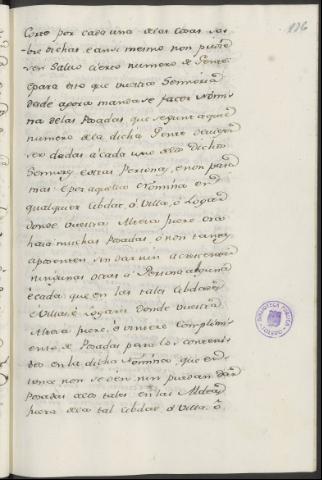 126
Corte por cada una delas Cosas so=
=bredichas. E ansi mesmo non puede
ver Salvo cierto numero de Gente
epara esto que vuestra Sennoria
dade agora mandase facer Nomi=
na delas Posadas, que segunt aquel
numero dela dicha Gente deviesen
ser dadas a cada uno delos dichos
Sennores, e otras Personas, e non para
mas. E por aquella Nomina en
qualquier Cibdat, o Villa, o Logar
donde vuestra Alteza fuere, ora
haia muchas Posadas, o non tan
aposenten, sin dar nin acrescentar
ningunas otras a Persona alguna
e cada que en las tales Cibdades,
Villas, e Logares donde vuestra
Alteza fuere, o viniere Complimi=
ento de Posadas para los conteni=
dos en la dicha Nomina, que en=
tonce non se den nin puedan dar
Posadas alos tales en las Aldeas
fuera dela tal Cibdat, o Villa, o
BIBLIOTECA PUBLICA
TOLEDO